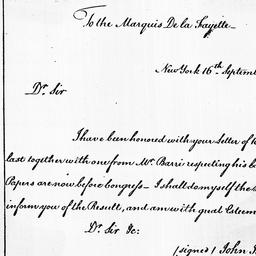 To the Marquis De la Fayette—
New York 16th Septem
Dr. Sir
I have been honored with your Letter of
last together with one from Mr. Barré respecting his
Papers are now before Congress— I shall do myself the
inform you of the Result, and am with great Esteem
Dr. Sir &c:
(signed) John